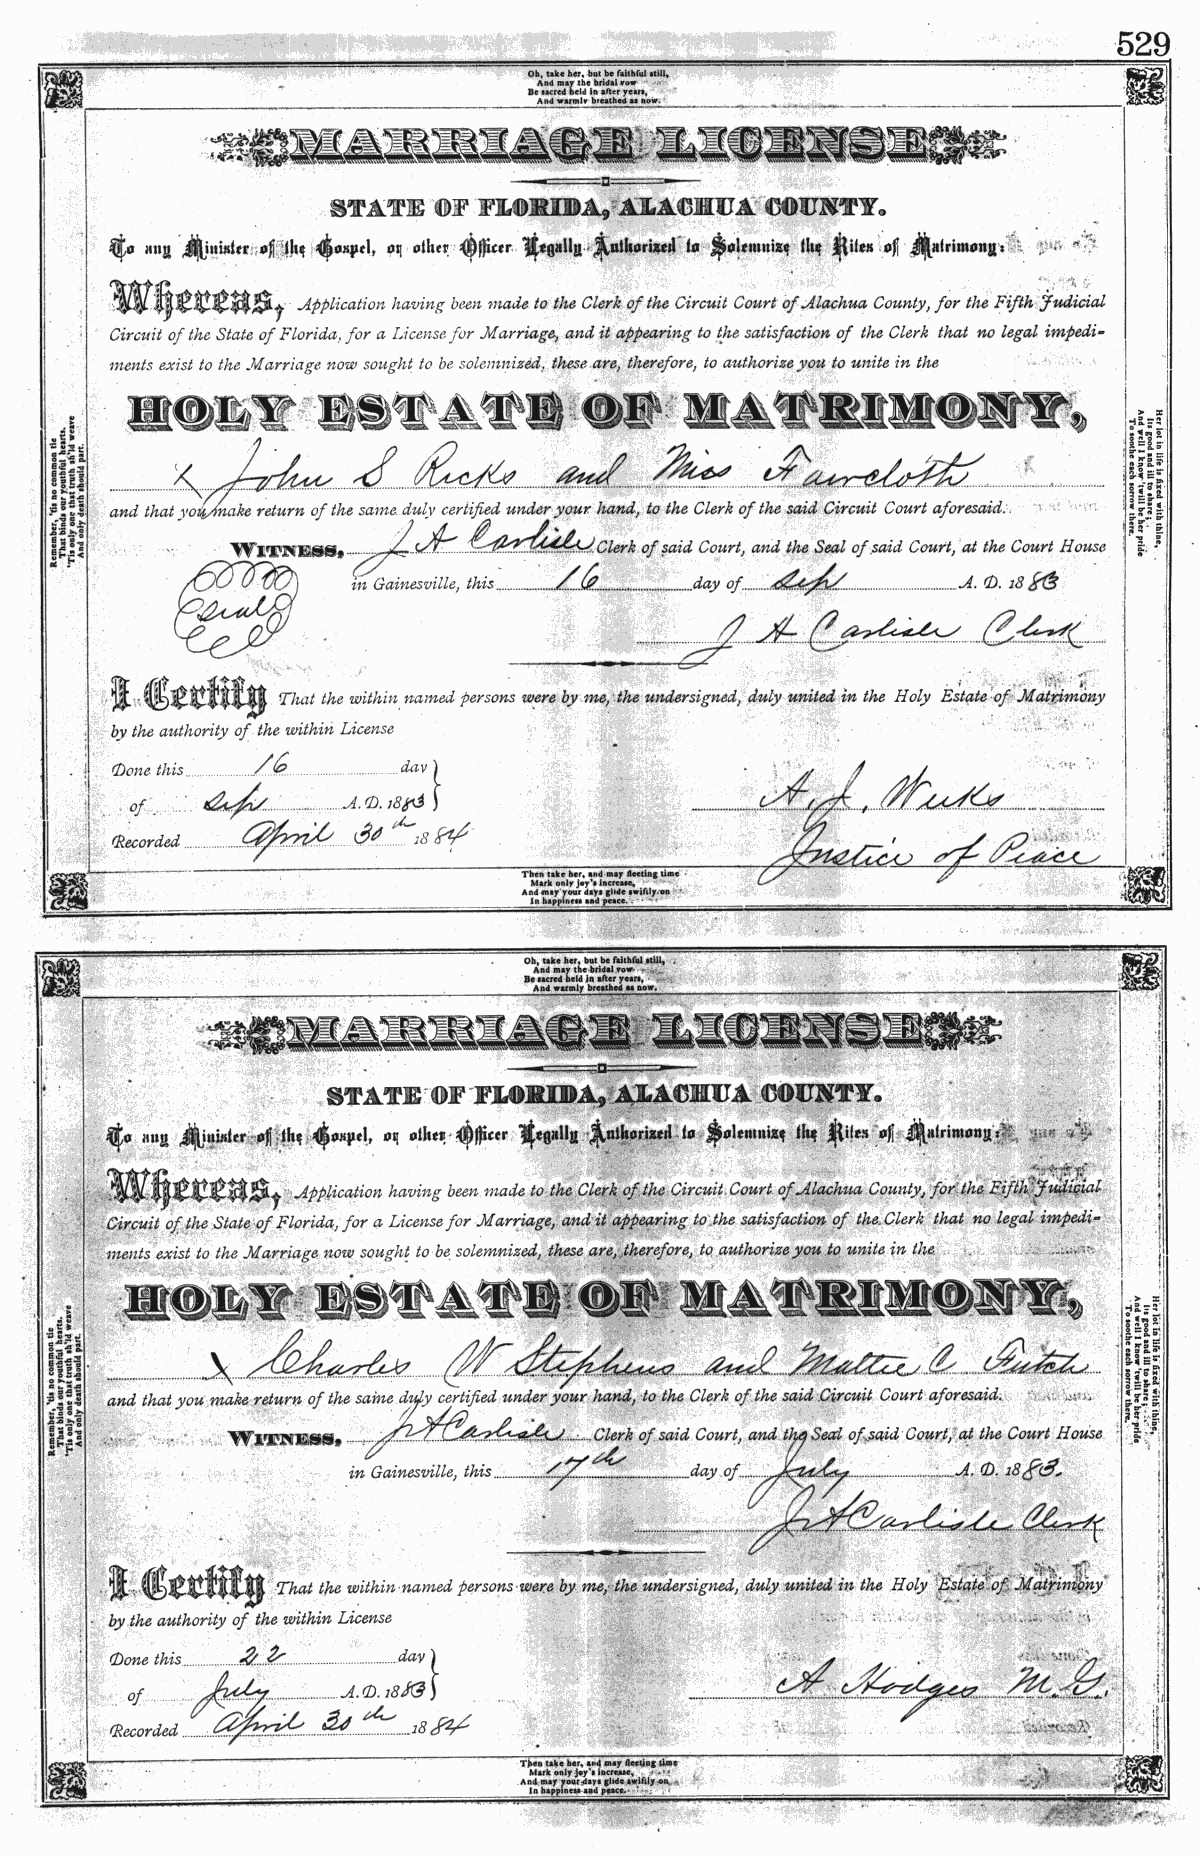 529
Oh, take her, but be faithful still,
And may the bridal vow
Be sacred held in after years,
And warmly breathed as now.
MARRIAGE LICENSE
STATE OF FLORIDA, ALACHUA COUNTY.
To any Minister of the Gospel, or other Officer Legally Authorized to Solemnize the Rites of Matrimony:
Whereas, Application having been made to the Clerk of the Circuit Court of Alachua County, for the Fifth Judicial
Circuit of the State of Florida, for a License for Marriage, and it appearing to the satisfaction of the Clerk that no legal impedi-
ments exist to the Marriage now sought to be solemnized, these are, therefore, to authorize you to unite in the
HOLY ESTATE OF MATRIMONY,
x John S Ricks and Miss Faircloth
and that you make return of the same duly certified under your hand, to the Clerk of the said Circuit Court aforesaid.
WITNESS, J A Carlisle Clerk of said Court, and the Seal of said Court, at the Court House
in Gainesville, this 16 day of Sep A. D. 1883
Seal
J A Carlisle Clerk
I Certify That the within named persons were by me, the undersigned, duly united in the Holy Estate of Matrimony
by the authority of the within License
Done this 16 day
of Sep A. D. 1883
A. J. Weeks
Recorded April 30th 1884
Justice of Peace
Remember, 'tis no common tie
That binds our youthful hearts.
'Tis only one that truth sh'ld weave
And only death should part.
Her lot in life is fixed with thine,
Its good and ill to share;
And well I know 'twill be her pride
To soothe each sorrow there.
Then take her, and may fleeting time
Mark only joy's increase,
And may your days glide swiftly on
In happiness and peace.
Oh, take her, but be faithful still,
And may the bridal vow
Be sacred held in after years,
And warmly breathed as now.
MARRIAGE LICENSE
STATE OF FLORIDA, ALACHUA COUNTY.
To any Minister of the Gospel, or other Officer Legally Authorized to Solemnize the Rites of Matrimony:
Whereas, Application having been made to the Clerk of the Circuit Court of Alachua County, for the Fifth Judicial
Circuit of the State of Florida, for a License for Marriage, and it appearing to the satisfaction of the Clerk that no legal impedi-
ments exist to the Marriage now sought to be solemnized, these are, therefore, to authorize you to unite in the
HOLY ESTATE OF MATRIMONY,
x Charles W Stephens and Mattie C Futch
and that you make return of the same duly certified under your hand, to the Clerk of the said Circuit Court aforesaid.
WITNESS, J A Carlisle Clerk of said Court, and the Seal of said Court, at the Court House
in Gainesville, this 17th day of July A. D. 1883.
J A Carlisle Clerk
I Certify That the within named persons were by me, the undersigned, duly united in the Holy Estate of Matrimony
by the authority of the within License
Done this 22 day
of July A. D. 1883
A Hodges M. G.
Recorded April 30th 1884
Remember, 'tis no common tie
That binds our youthful hearts.
'Tis only one that truth sh'ld weave
And only death should part.
Her lot in life is fixed with thine,
Its good and ill to share;
And well I know 'twill be her pride
To soothe each sorrow there.
Then take her, and may fleeting time
Mark only joy's increase,
And may your days glide swiftly on
In happiness and peace.